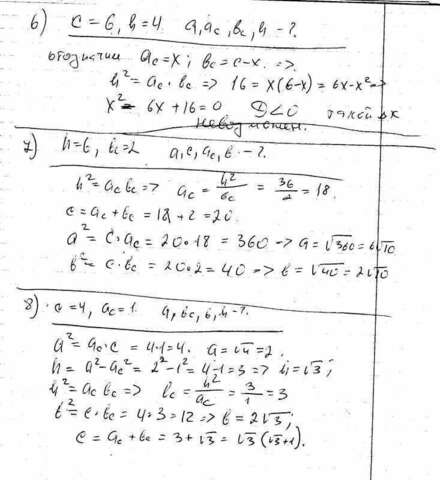 6) c = 6, h = 4. a, a_c, b_c, h - ?.
обозначим a_c = x; b_c = c - x. =>
h² = a_c · b_c => 16 = x(6-x) = 6x - x² =>
x² - 6x + 16 = 0 D < 0 такой Δ
невозможен.
7) h = 6, b_c = 2 a, c, a_c, b - ?.
h² = a_c b_c => a_c = h²/b_c = 36/2 = 18.
c = a_c + b_c = 18 + 2 = 20.
a² = c · a_c = 20 · 18 = 360 -> a = √360 = 6√10
b² = c · b_c = 20 · 2 = 40 -> b = √40 = 2√10
8) c = 4, a_c = 1. a, b_c, b, h - ?.
a² = a_c · c = 4 · 1 = 4. a = √4 = 2.
h = a² - a_c² = 2² - 1² = 4 - 1 = 3 => h = √3;
h² = a_c b_c => b_c = h²/a_c = 3/1 = 3
b² = c · b_c = 4 · 3 = 12 => b = 2√3;
c = a_c + b_c = 3 + √3 = √3(√3+1).